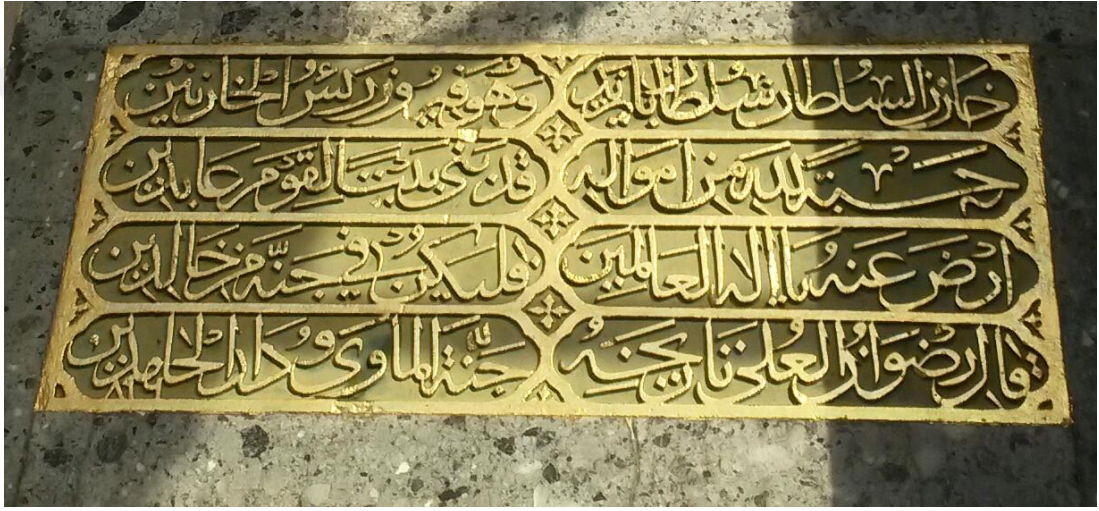 خازن السلطان سلطان بايزيد وهو فيروز رئس الخازنين
حسبة لله من امواله قد بنى بيتا لقوم عابدين
ارض عنه يا اله العالمين وليكن في جنة من خالدين
قال رضوان العلى تاريخه جنة المأوى ودار الحامدين